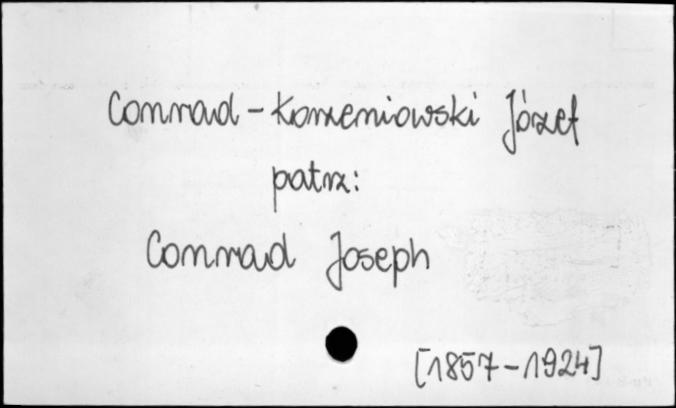 Conrad-Korzeniowski Józef
patrz:
Conrad Joseph
[1857-1924]